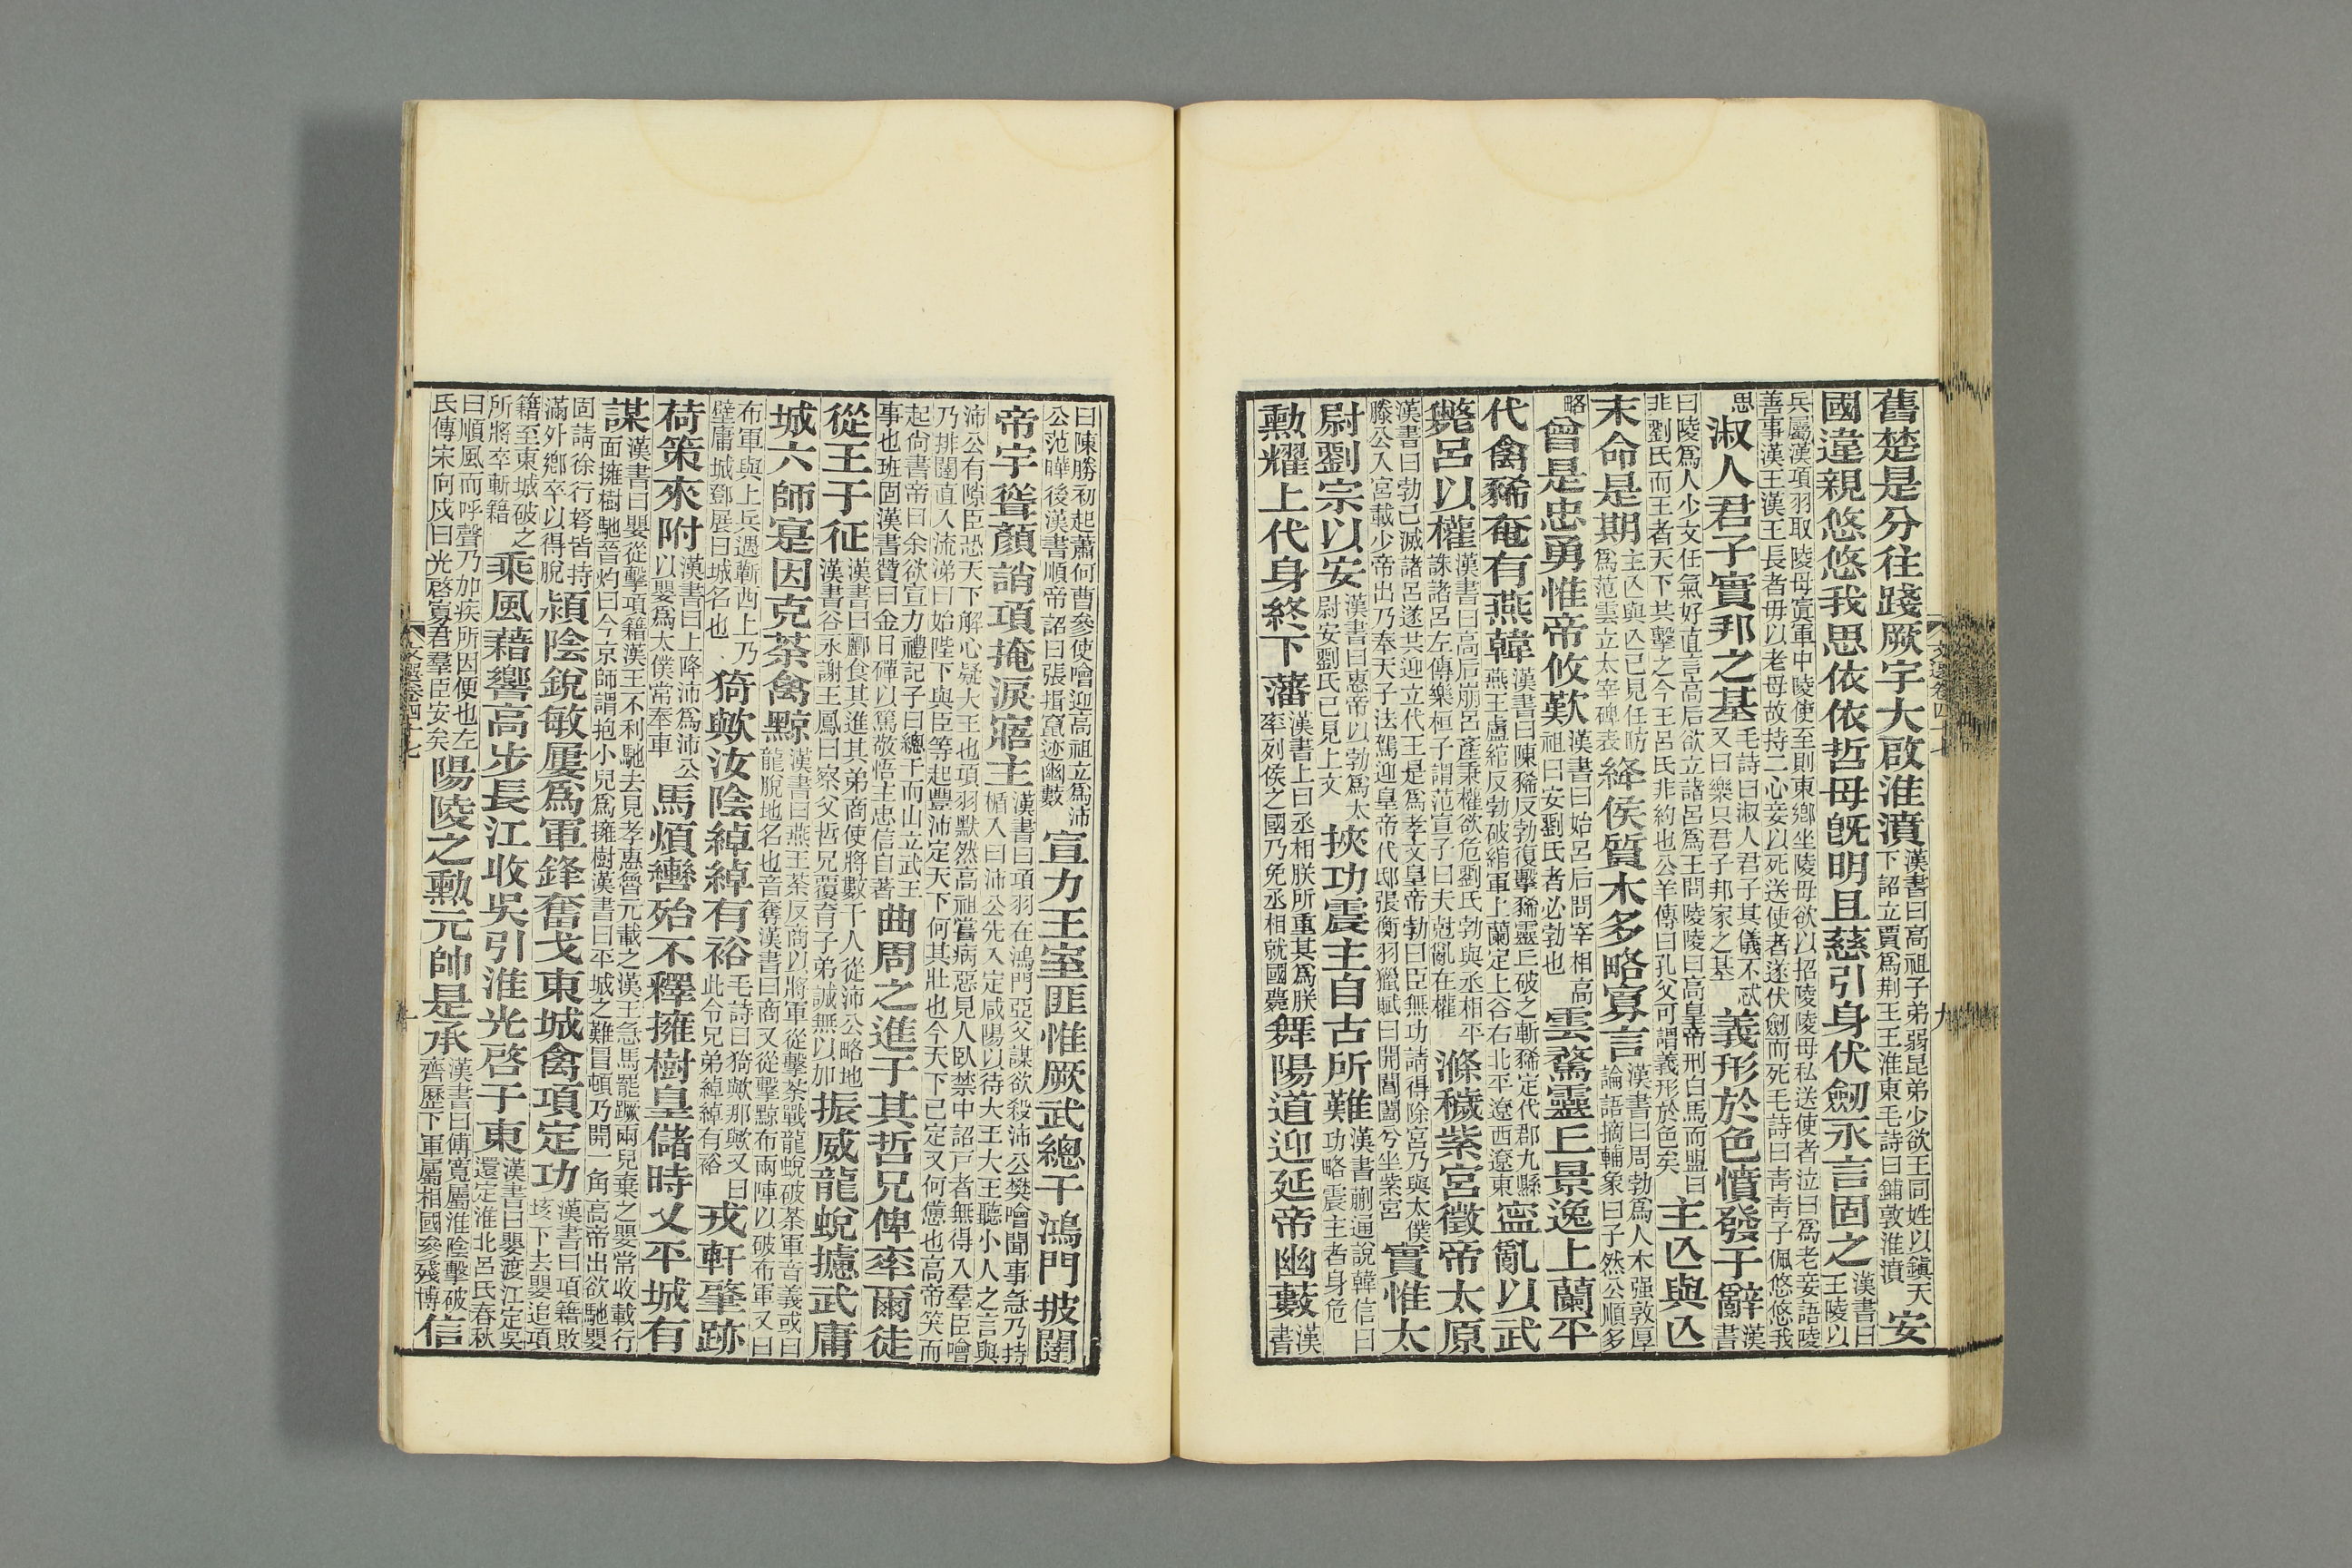 舊楚是分往踐厥宇大啟淮濆漢書曰高祖子弟弱昆弟少欲王同姓以鎭天下詔立賈爲荆王王淮東毛詩曰鋪敦淮濆安
國違親悠悠我思依依哲母旣明且慈引身伏劒永言固之漢書曰王陵以
兵屬漢項羽取陵母寘軍中陵使至則東鄕坐陵母欲以招陵陵母私送使者泣曰爲老妾語陵善事漢王漢王長者毋以老母故持二心妾以死送使者遂伏劒而死毛詩曰靑靑子佩悠悠我
思淑人君子實邦之基毛詩曰淑人君子其儀不忒又曰樂只君子邦家之基義形於色憤發于辭漢書
曰陵爲人少文任氣好直言高后欲立諸呂爲王問陵陵曰高皇帝刑白馬而盟曰非劉氏而王者天下共擊之今王呂氏非約也公羊傳曰孔父可謂義形於色矣主亾與亾
末命是期主亾與亾已見任昉爲范雲立太宰碑表絳侯質木多略寡言漢書曰周勃爲人木强敦厚論語摘輔象曰子然公順多
略曾是忠勇惟帝攸歎漢書曰始呂后問宰相高祖曰安劉氏者必勃也雲騖靈丘景逸上蘭平
代禽豨奄有燕韓漢書曰陳豨反勃復擊豨靈丘破之斬豨定代郡九縣燕王盧綰反勃破綰軍上蘭定上谷右北平遼西遼東寍亂以武
斃呂以權漢書曰高后崩呂產秉權欲危劉氏勃與丞相平誅諸呂左傳樂桓子謂范宣子曰夫尅亂在權滌穢紫宮徵帝太原
漢書曰勃已滅諸呂遂共迎立代王是爲孝文皇帝勃曰臣無功請得除宮乃與太僕滕公入宮載少帝出乃奉天子法駕迎皇帝代邸張衡羽獵賦曰開閶闔兮坐紫宮實惟太
尉劉宗以安漢書曰惠帝以勃爲太尉安劉氏已見上文挾功震主自古所難漢書蒯通說韓信曰功略震主者身危
勳耀上代身終下藩漢書上曰丞相朕所重其爲朕率列侯之國乃免丞相就國薨舞陽道迎延帝幽藪漢書
文選卷四十七
九
曰陳勝初起蕭何曹參使噲迎高祖立爲沛公范曄後漢書順帝詔曰張揖竄迹幽藪宣力王室匪惟厥武總干鴻門披闥
帝宇聳顏誚項掩淚寤主漢書曰項羽在鴻門亞父謀欲殺沛公樊噲聞事急乃持楯入曰沛公先入定咸陽以待大王大王聽小人之言與
沛公有隙臣恐天下解心疑大王也項羽默然高祖嘗病惡見人臥禁中詔戸者無得入羣臣噲乃排闥直入流涕曰始陛下與臣等起豐沛定天下何其壯也今天下已定又何憊也高帝笑而
起尙書帝曰余欲宣力禮記子曰總干而山立武王事也班固漢書贊曰金日磾以篤敬悟主忠信自著曲周之進于其哲兄俾率爾徒
從王于征漢書曰酈食其進其弟商使將數千人從沛公略地漢書谷永謝王鳳曰察父哲兄覆育子弟誠無以加振威龍蛻攄武庸
城六師寔因克荼禽黥漢書曰燕王荼反商以將軍從擊荼戰龍蛻破荼軍音義或曰龍脫地名也音奪漢書曰商又從擊黥布兩陣以破布軍又曰
布軍與上兵遇蘄西上乃壁庸城鄧展曰城名也猗歟汝陰綽綽有裕毛詩曰猗歟那歟又曰此令兄弟綽綽有裕戎軒肇跡
荷策來附漢書曰上降沛爲沛公以嬰爲太僕常奉車馬煩轡殆不釋擁樹皇儲時乂平城有
謀漢書曰嬰從擊項籍漢王不利馳去見孝惠魯元載之漢王急馬罷蹶兩兒棄之嬰常收載行面擁樹馳晉灼曰今京師謂抱小兒爲擁樹漢書曰平城之難冒頓乃開一角高帝出欲馳嬰
固請徐行弩皆持滿外鄕卒以得脫潁陰銳敏屢爲軍鋒奮戈東城禽項定功漢書曰項籍敗垓下去嬰追項
籍至東城破之所將卒斬籍乘風藉響高步長江收吳引淮光啓于東漢書曰嬰渡江定吳還定淮北呂氏春秋
曰順風而呼聲乃加疾所因便也左氏傳宋向戌曰光啓寡君羣臣安矣陽陵之勳元帥是承漢書曰傅寬屬淮陰擊破齊歷下軍屬相國參殘博信
文選卷四十七